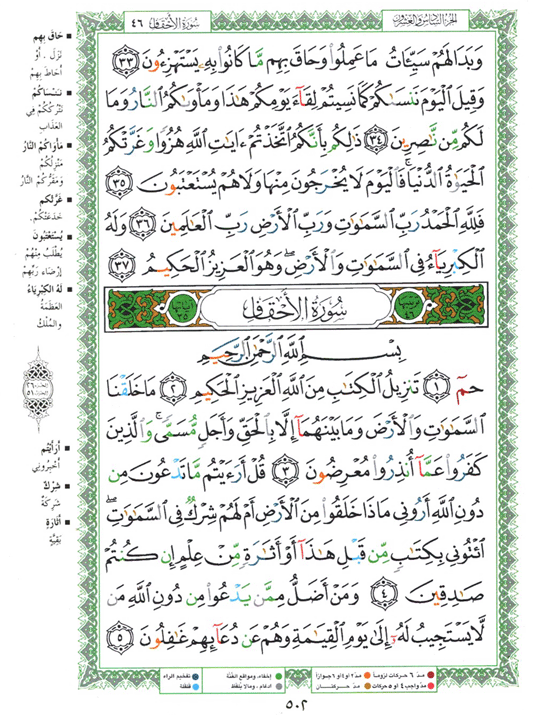 سُورَةُ الأَحْقَافِ ٤٦
الجزء السادس والعشرون
وَبَدَا لَهُمْ سَيِّئَاتُ مَا عَمِلُوا۟ وَحَاقَ بِهِم مَّا كَانُوا۟ بِهِۦ يَسْتَهْزِءُونَ ٣٣
وَقِيلَ ٱلْيَوْمَ نَنسَىٰكُمْ كَمَا نَسِيتُمْ لِقَآءَ يَوْمِكُمْ هَٰذَا وَمَأْوَىٰكُمُ ٱلنَّارُ وَمَا
لَكُم مِّن نَّٰصِرِينَ ٣٤ ذَٰلِكُم بِأَنَّكُمُ ٱتَّخَذْتُمْ ءَايَٰتِ ٱللَّهِ هُزُوًا وَغَرَّتْكُمُ
ٱلْحَيَوٰةُ ٱلدُّنْيَا ۚ فَٱلْيَوْمَ لَا يُخْرَجُونَ مِنْهَا وَلَا هُمْ يُسْتَعْتَبُونَ ٣٥
فَلِلَّهِ ٱلْحَمْدُ رَبِّ ٱلسَّمَٰوَٰتِ وَرَبِّ ٱلْأَرْضِ رَبِّ ٱلْعَٰلَمِينَ ٣٦ وَلَهُ
ٱلْكِبْرِيَآءُ فِى ٱلسَّمَٰوَٰتِ وَٱلْأَرْضِ ۖ وَهُوَ ٱلْعَزِيزُ ٱلْحَكِيمُ ٣٧
سُورَةُ الأَحْقَافِ
بِسْمِ ٱللَّهِ ٱلرَّحْمَٰنِ ٱلرَّحِيمِ
حمٓ ١ تَنزِيلُ ٱلْكِتَٰبِ مِنَ ٱللَّهِ ٱلْعَزِيزِ ٱلْحَكِيمِ ٢ مَا خَلَقْنَا
ٱلسَّمَٰوَٰتِ وَٱلْأَرْضَ وَمَا بَيْنَهُمَآ إِلَّا بِٱلْحَقِّ وَأَجَلٍ مُّسَمًّى ۚ وَٱلَّذِينَ
كَفَرُوا۟ عَمَّآ أُنذِرُوا۟ مُعْرِضُونَ ٣ قُلْ أَرَءَيْتُم مَّا تَدْعُونَ مِن
دُونِ ٱللَّهِ أَرُونِى مَاذَا خَلَقُوا۟ مِنَ ٱلْأَرْضِ أَمْ لَهُمْ شِرْكٌ فِى ٱلسَّمَٰوَٰتِ ۖ
ٱئْتُونِى بِكِتَٰبٍ مِّن قَبْلِ هَٰذَآ أَوْ أَثَٰرَةٍ مِّنْ عِلْمٍ إِن كُنتُمْ
صَٰدِقِينَ ٤ وَمَنْ أَضَلُّ مِمَّن يَدْعُوا۟ مِن دُونِ ٱللَّهِ مَن
لَّا يَسْتَجِيبُ لَهُۥٓ إِلَىٰ يَوْمِ ٱلْقِيَٰمَةِ وَهُمْ عَن دُعَآئِهِمْ غَٰفِلُونَ ٥
■ حَاقَ بِهِم
نَزَلَ . أَوْ
أَحَاطَ بِهِمْ
■ نَنْسَاكُمْ
نَتْرُكُكُمْ فِي
العَذَابِ
■ مَأْوَاكُمُ النَّارُ
مَنْزِلُكُمْ
وَمَقَرُّكُمُ النَّارُ
■ غَرَّتْكُم
خَدَعَتْكُمْ
■ يُسْتَعْتَبُونَ
يُطْلَبُ مِنْهُمْ
إِرْضَاءُ رَبِّهِمْ
■ لَهُ الكِبْرِيَاءُ
العَظَمَةُ
والمُلْكُ
■ أَرَأَيْتُم
أَخْبِرُونِي
■ شِرْكٌ
شَرِكَةٌ
■ أَثَارَةٍ
بَقِيَّةٍ
مدّ ٦ حركات لزوماً
مدّ ٢ أو ٤ أو ٦ جوازاً
مدّ واجب ٤ أو ٥ حركات
مدّ حركتان
إخفاء، ومواقع الغُنَّة
ادغام ، وما لا يلفظ
تفخيم الراء
قلقلة
٥٠٢